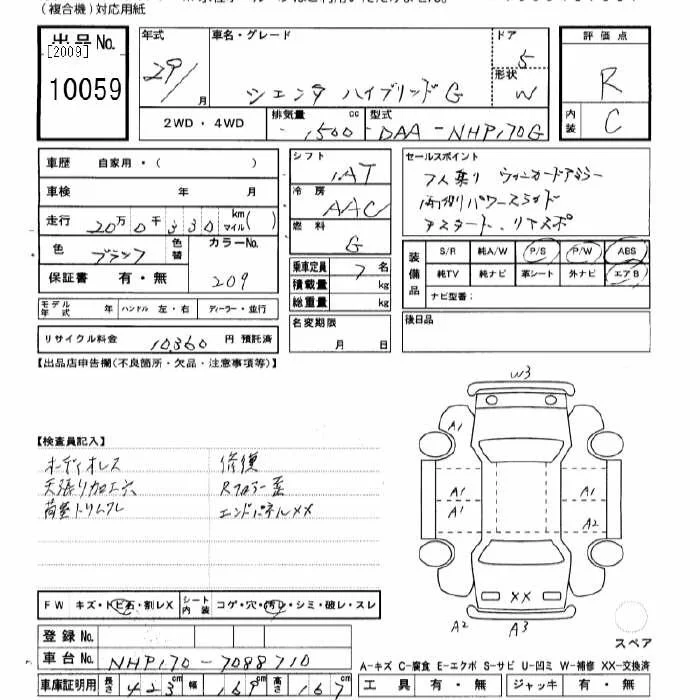 (複合機)対応用紙
出品No.
[2009]
10059
年式 車名・グレード ドア
29/ 月 シエンタ ハイブリッドG 5
形状
W
評価点
R
内装 C
2WD・4WD 排気量 cc 型式
1500 DAA-NHP170G
車歴 自家用・( )
車検 年 月
走行 20万0千330 km マイル( )
色 ブラック 色替 カラーNo.
209
保証書 有・無
モデル年式 年 ハンドル 左・右 ディーラー・並行
リサイクル料金 10360 円 預託済
シフト
AT
冷房
AAC
燃料
G
乗車定員 7 名
積載量 kg
総重量 kg
名変期限
月 日
セールスポイント
7人乗り
両側パワースライド
装備品
S/R 純A/W P/S P/W ABS
純TV 純ナビ 革シート 外ナビ エアB
ナビ型番:
後日品
【出品店申告欄(不良箇所・欠品・注意事項等)】
【検査員記入】
オーディオレス 修復
天張り加工穴 Rフロアー歪
荷室トリムワレ エンドパネルXX
W3
A1
A1 A1
A1
A2
XX
A2 A3
スペア
FW キズ・トビ石・割レX シート内装 コゲ・穴・汚レ・シミ・破レ・スレ
登録No.
車台No. NHP170-7088710
車庫証明用 長さ 423 cm 幅 169 cm 高さ 167 cm
A-キズ C-腐食 E-エクボ S-サビ U-凹ミ W-補修 XX-交換済
工具 有・無 ジャッキ 有・無